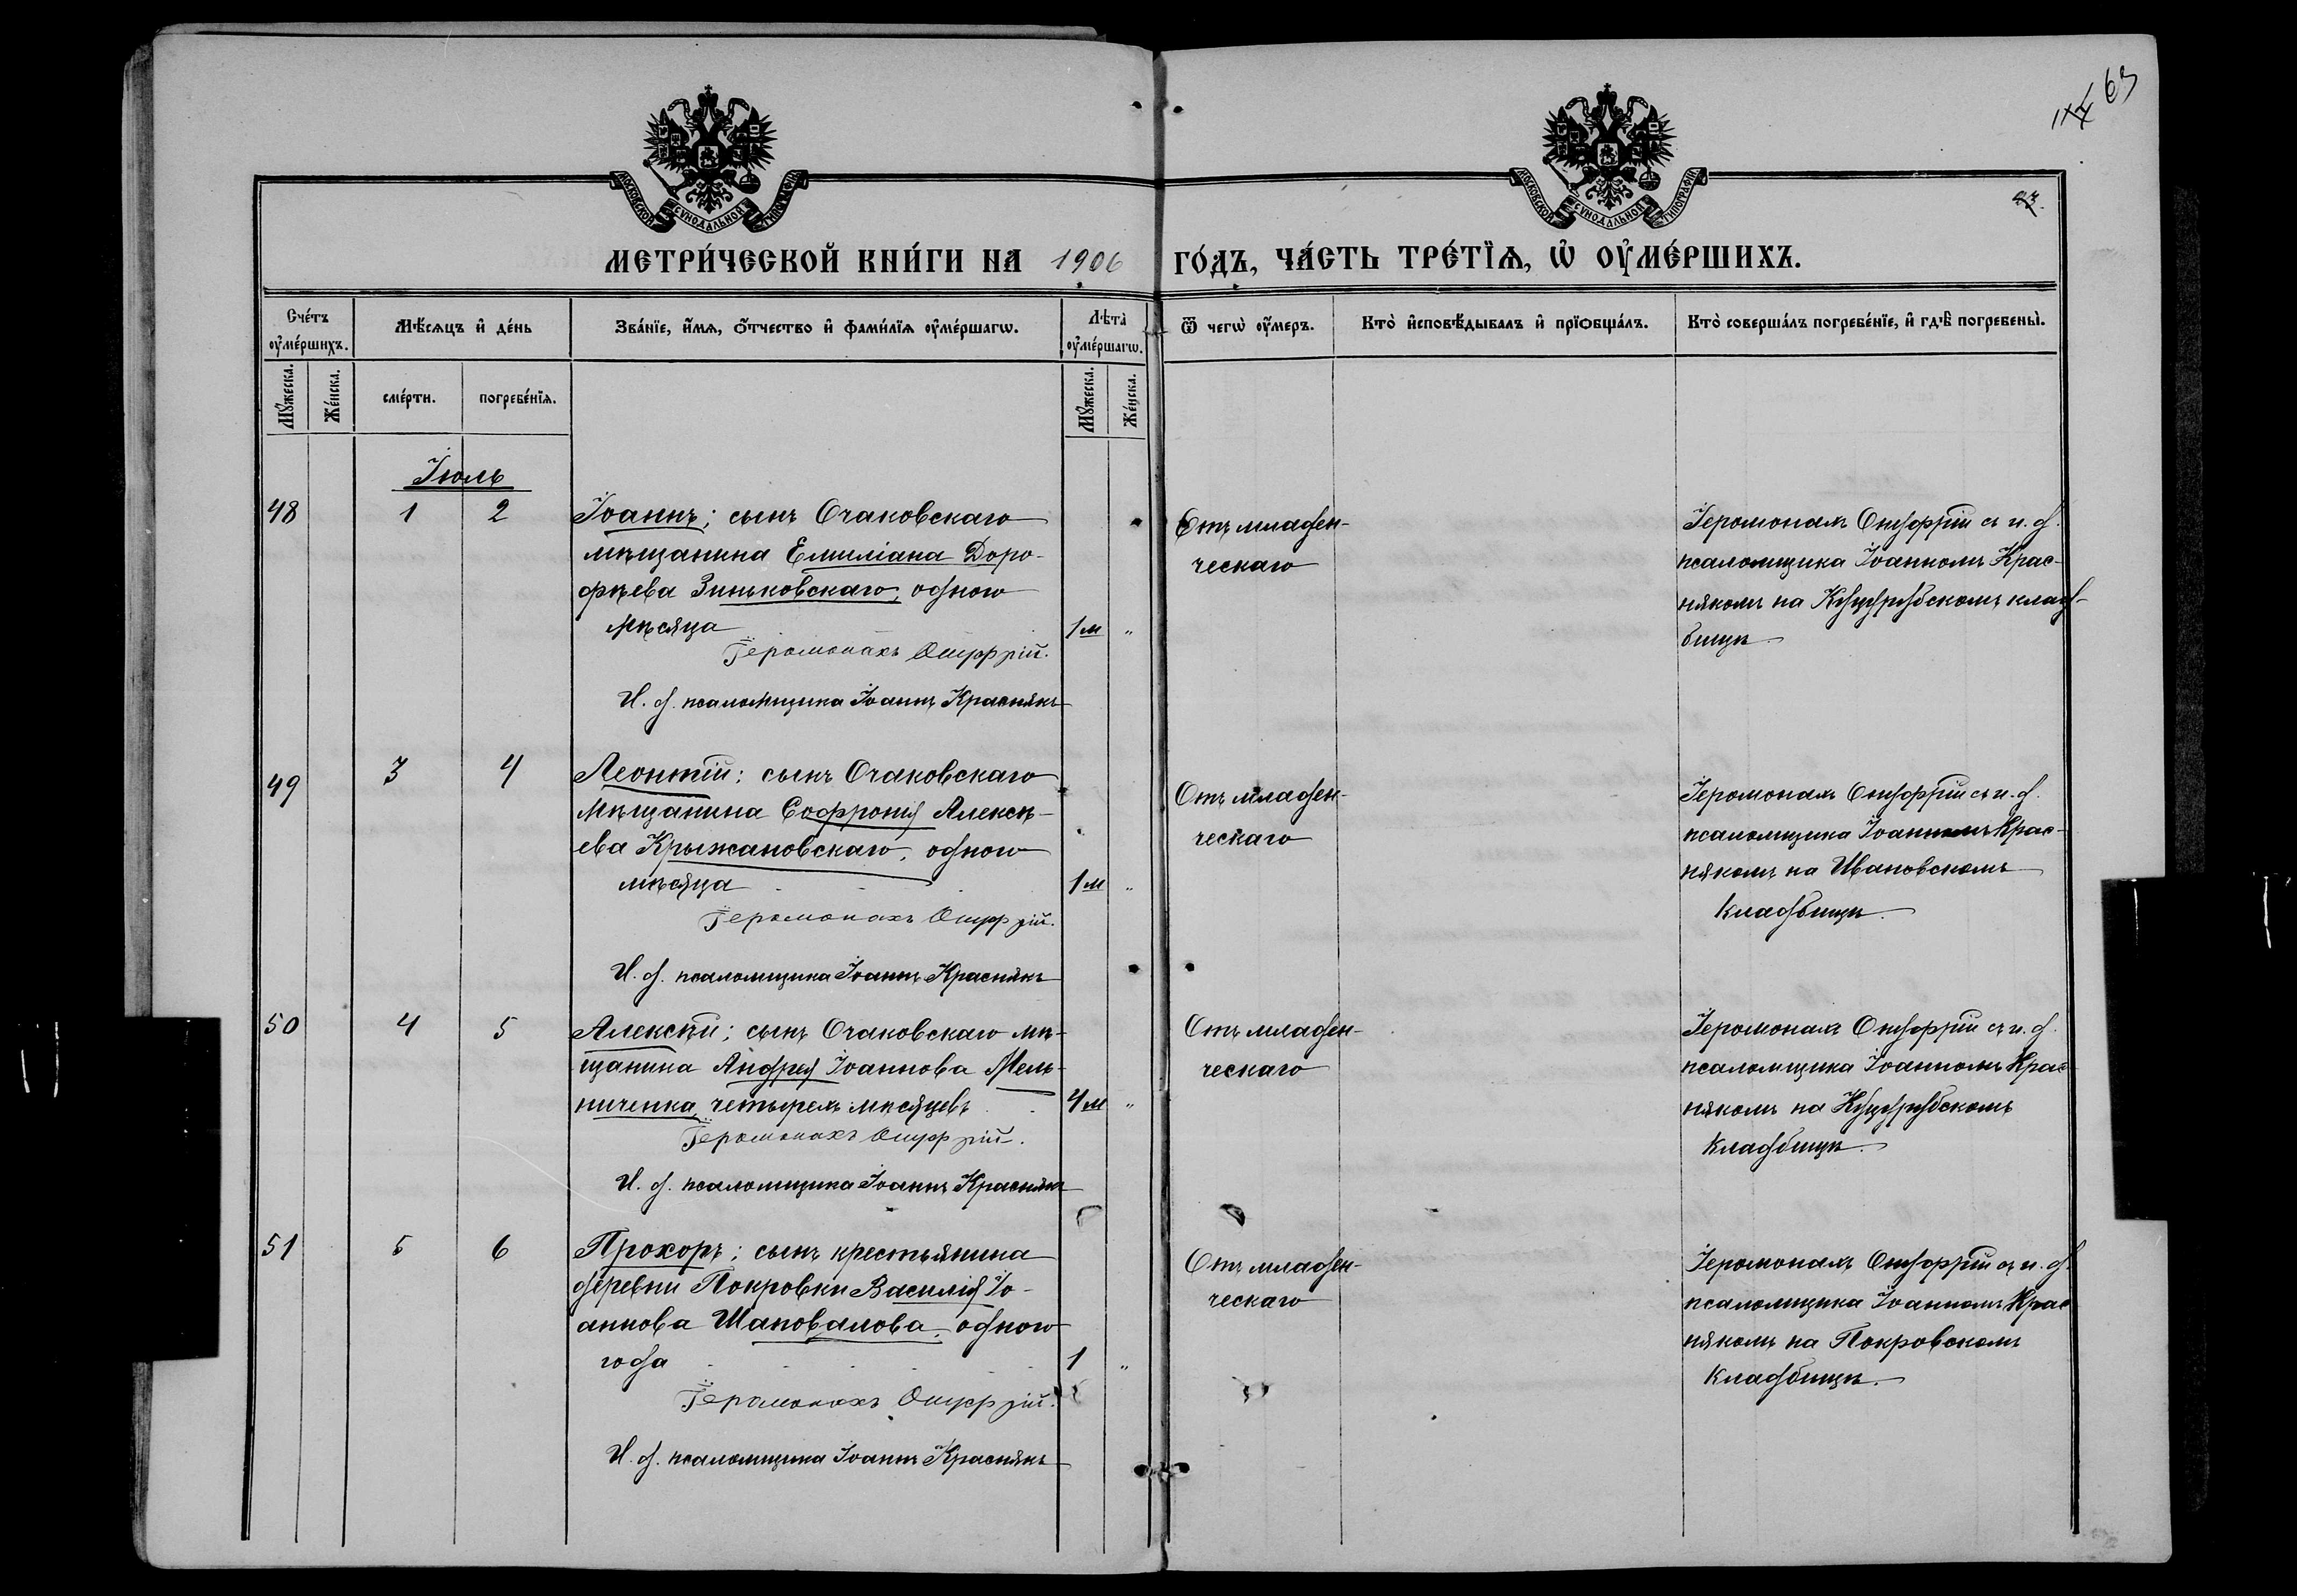 63
МОСКОВСКОЙ СУНОДАЛЬНОЙ ТИПОГРАФІИ
МОСКОВСКОЙ СУНОДАЛЬНОЙ ТИПОГРАФІИ
МЕТРИ́ЧЕСКОЙ КНИ́ГИ НА 1906 ГО́ДЪ, ЧА́СТЬ ТРЕ́ТЇѦ, Ѡ҆ ОУ҆МЕ́РШИХЪ.
Сче́тъ оу҆ме́ршихъ.
Мѣ́сѧцъ и҆ де́нь
Зва́нїе, и҆́мѧ, ѻ҆́тчество и҆ фами́лїѧ оу҆ме́ршагѡ.
Лѣта̀ оу҆ме́ршагѡ.
Ѿ чегѡ̀ оу҆́меръ.
Кто̀ и҆сповѣ́дывалъ и҆ прїѻбща́лъ.
Кто̀ соверша́лъ погребе́нїе, и҆ гдѣ̀ погребены̀.
Мꙋ́жеска.
Же́нска.
сме́рти.
погребе́нїѧ.
Мꙋ́жеска.
Же́нска.
Іюль
48 1 2
Іоаннъ; сынъ Очаковскаго
мѣщанина Емиліана Доро-
фѣева Зиньковскаго, одного
мѣсяца 1 м "
Іеромонахъ Онуфрій.
И. д. псаломщика Іоаннъ Краснякъ
Отъ младен-
ческаго
Іеромонахъ Онуфрій съ и. д.
псаломщика Іоанномъ Крас-
някомъ на Куцурубскомъ клад-
бищѣ.
49 3 4
Леонтій; сынъ Очаковскаго
мѣщанина Софронія Алексѣ-
ева Крыжановскаго, одного
мѣсяца 1 м "
Іеромонахъ Онуфрій.
И. д. псаломщика Іоаннъ Краснякъ
Отъ младен-
ческаго
Іеромонахъ Онуфрій съ и. д.
псаломщика Іоанномъ Крас-
някомъ на Ивановскомъ
кладбищѣ.
50 4 5
Алексѣй; сынъ Очаковскаго мѣ-
щанина Андрея Іоаннова Мель-
ниченка, четырехъ мѣсяцевъ 4 м "
Іеромонахъ Онуфрій.
И. д. псаломщика Іоаннъ Краснякъ
Отъ младен-
ческаго
Іеромонахъ Онуфрій съ и. д.
псаломщика Іоанномъ Крас-
някомъ на Куцурубскомъ
кладбищѣ.
51 5 6
Прохоръ; сынъ крестьянина
деревни Покровки Василія Іо-
аннова Шаповалова, одного
года 1 "
Іеромонахъ Онуфрій.
И. д. псаломщика Іоаннъ Краснякъ
Отъ младен-
ческаго
Іеромонахъ Онуфрій съ и. д.
псаломщика Іоанномъ Крас
някомъ на Покровскомъ
кладбищѣ.